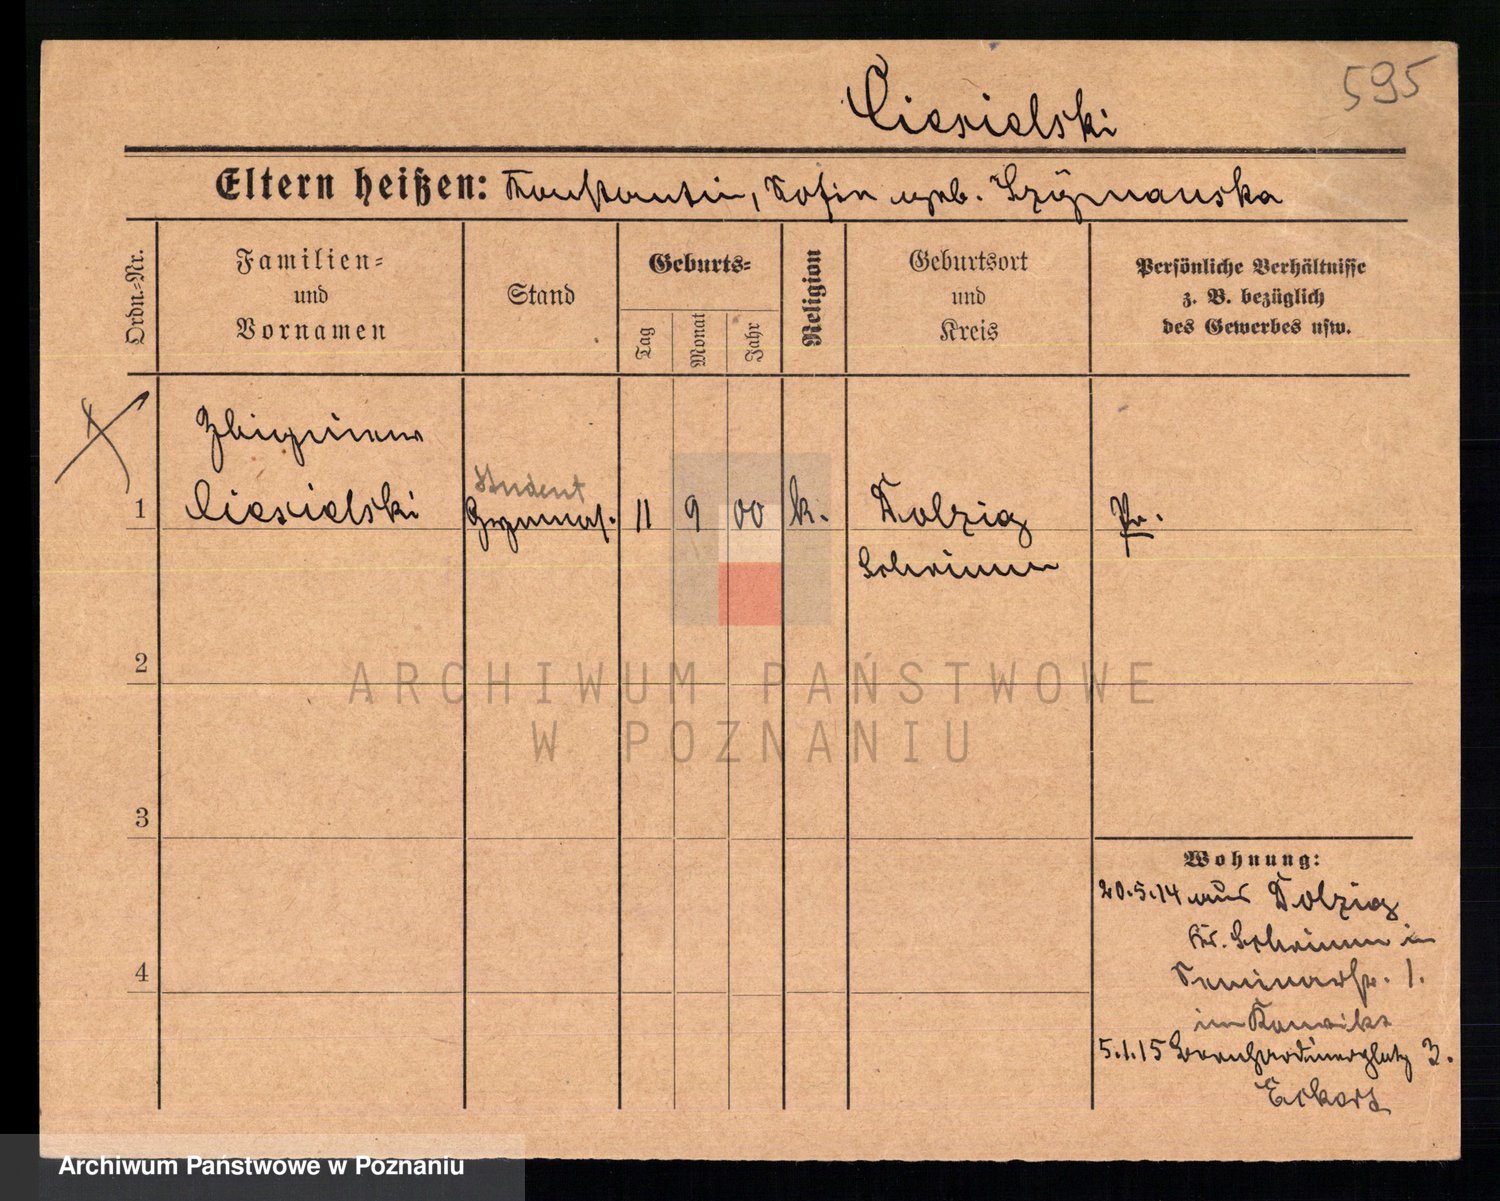 595
Ciesielski
Eltern heißen: Konstantin, Sofie geb. Szymanska
Ordn.-Nr.
Familien-
und
Vornamen
Stand
Geburts-
Tag
Monat
Jahr
Religion
Geburtsort
und
Kreis
Persönliche Verhältnisse
z. B. bezüglich
des Gewerbes usw.
Zbigniew
1 Ciesielski
Student
Gymnas. 11 9 00 k. Dolzig Pr.
Schrimm
2
3
4
Wohnung:
20.5.14 aus Dolzig
Kr. Schrimm in
Seminarstr. 1.
im Konvikt
5.1.15 Bernhardinerplatz 3.
Eckart
ARCHIWUM PAŃSTWOWE
W POZNANIU
Archiwum Państwowe w Poznaniu